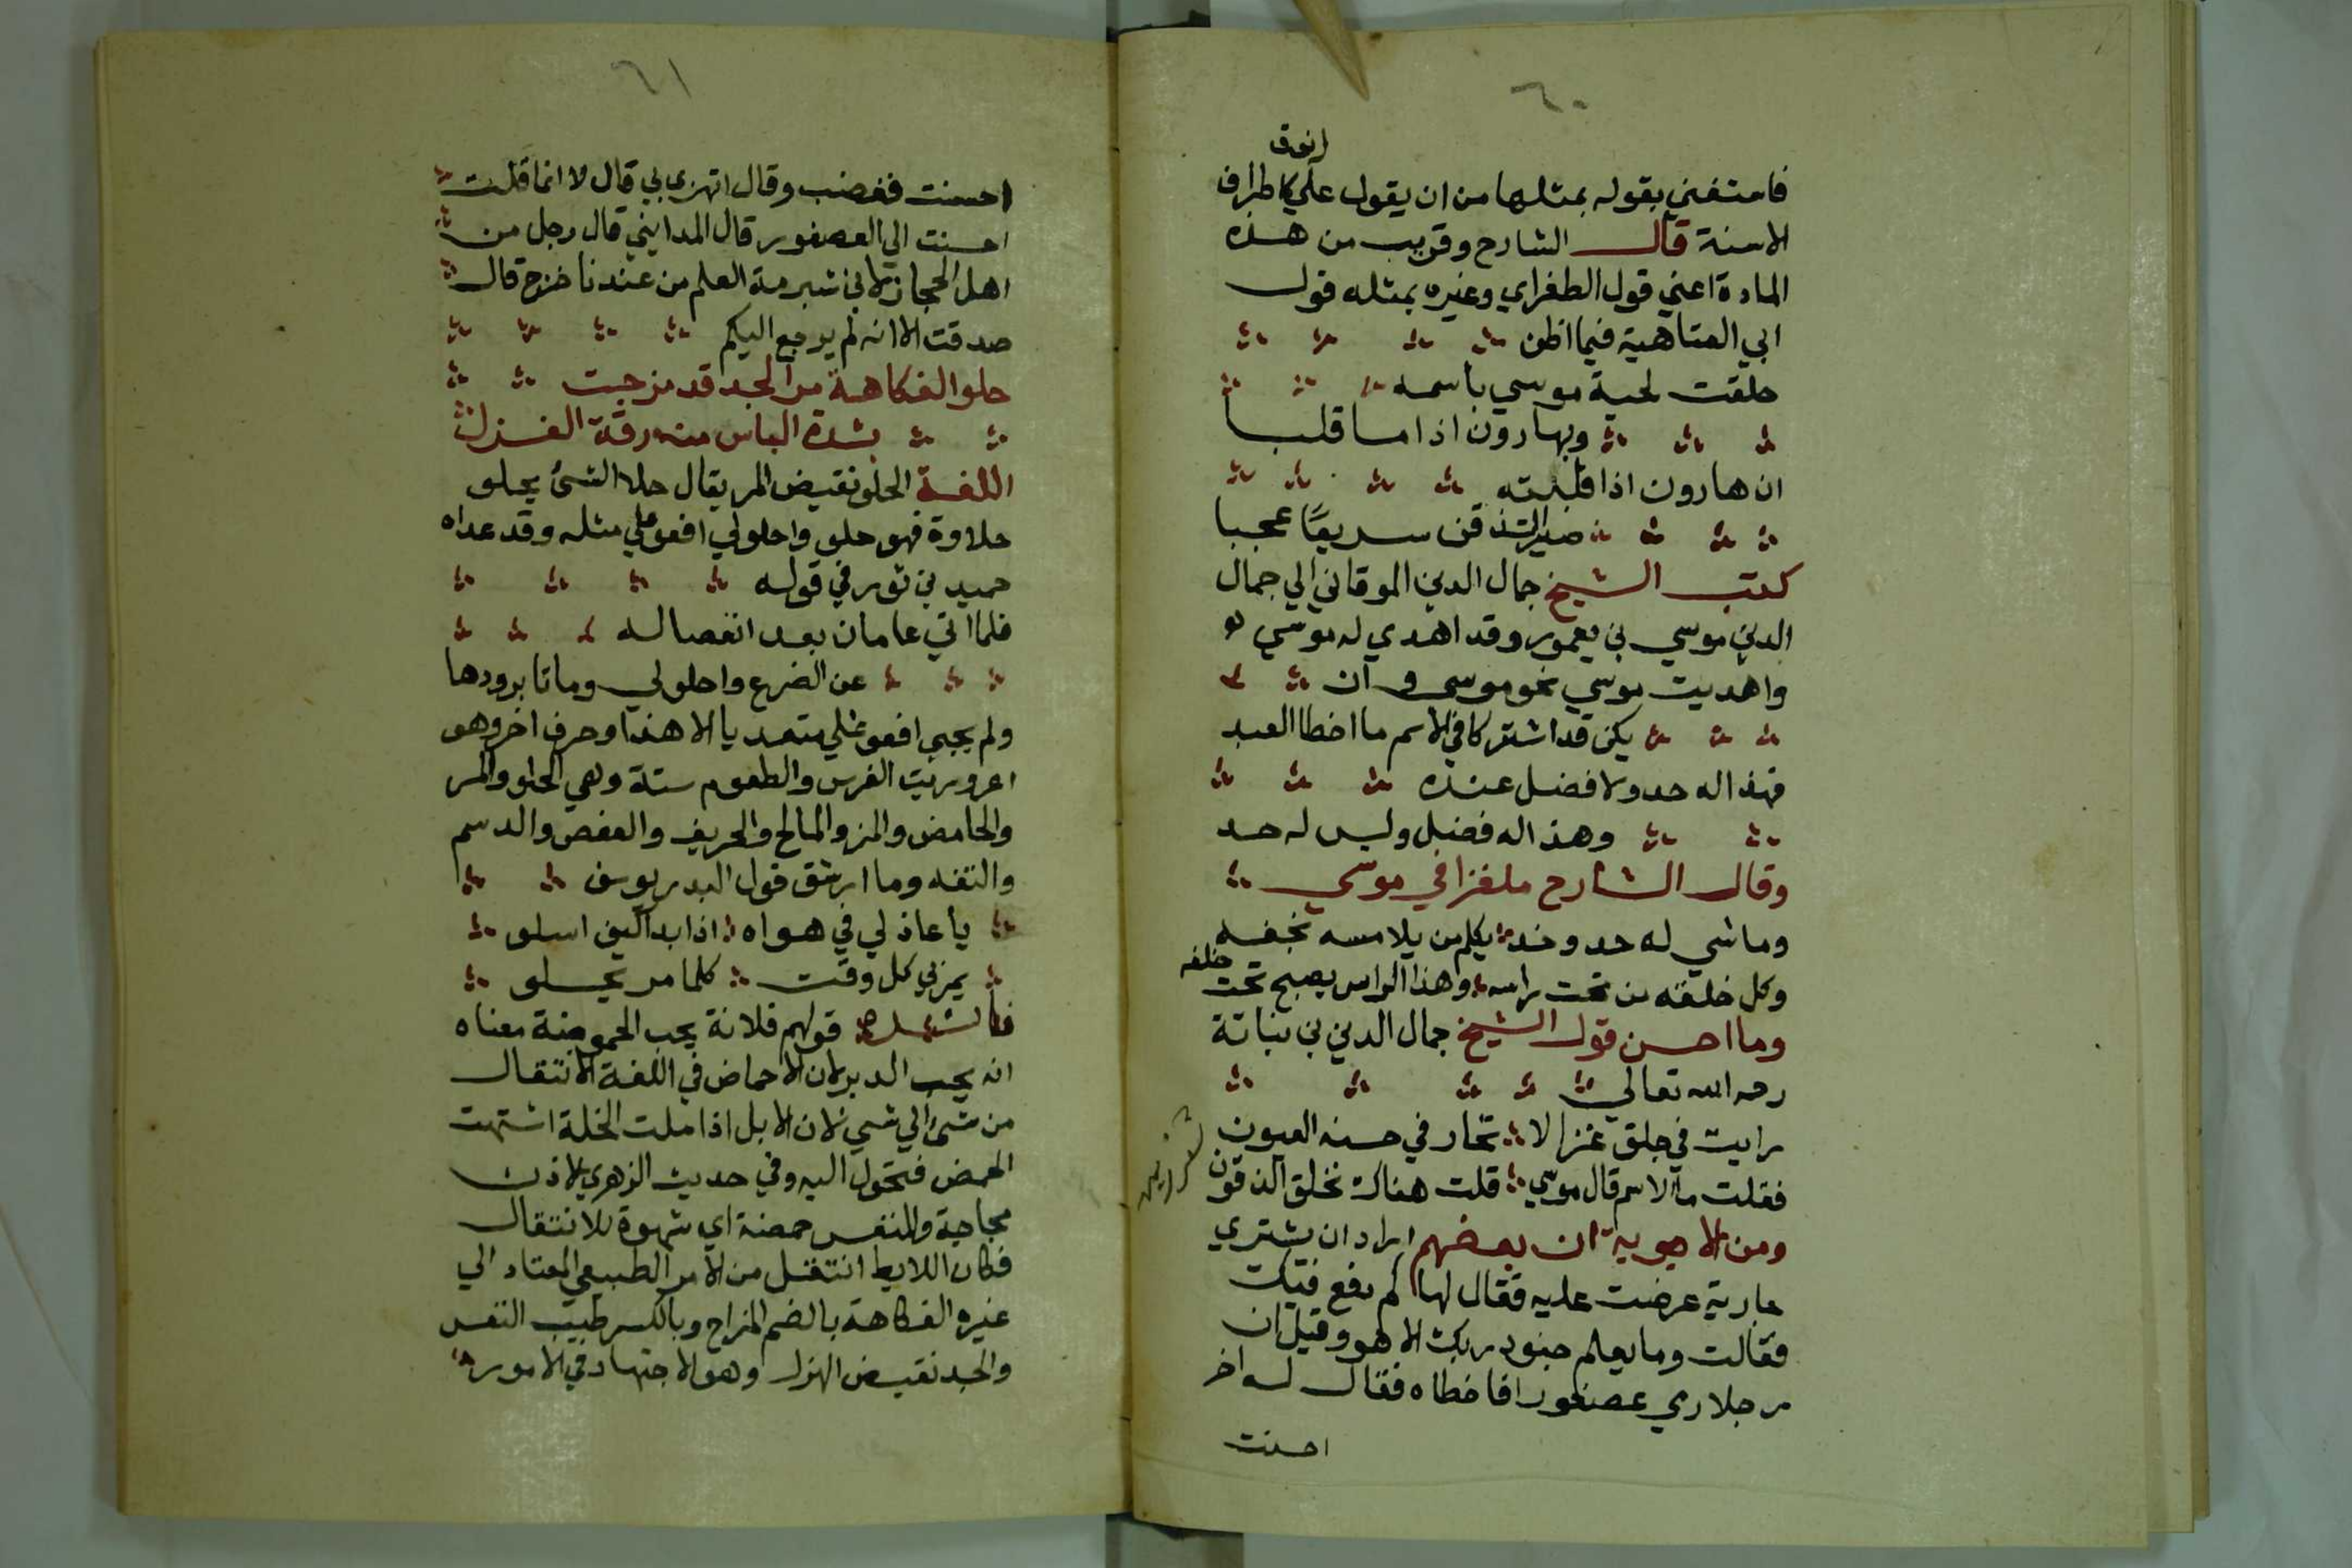 ٦٠
انوق
فاستغني بقوله بمثلها من ان يقول علي كاطراف
الاسنة قال الشارح وقريب من هذه
المادة اعني قول الطغراي وغيره بمثله قول
ابي العتاهية فيما اظن
حلقت لحية موسي باسمه
وبهارون اذا ما قلبا
ان هارون اذا قلبته
صير الذقن سريعًا عجبا
كتب الشيخ جمال الدين الموقاني الي جمال
الدين موسي بن يعمور وقد اهدي له موسي
واهديت موسي نحو موسي وان
يكن قد اشتركا في الاسم ما اخطا العبد
فهذا له حد ولا فضل عنده
وهذا له فضل وليس له حد
وقال الشارح ملغزا في موسي
وما شي له حد وخد يكلم من يلامسه بحقه
وكل خلقه من تحت راسه وهذا الراس يصبح تحت
حلقه
وما احسن قول الشيخ جمال الدين بن نباتة
رحمه الله تعالي
رايت في جلق غزالا تحار في حسنه العيون
فقلت ما الاسم قال موسي قلت هناك تحلق الذقون
ومن الاجوبة ان بعضهم اراد ان يشتري
جارية عرضت عليه فقال لها كم دفع فيك
فقالت وما يعلم جنود ربك الا هو وقيل ان
رجلا رمي عصفورا فاخطاه فقال له اخر
احسنت
٦١
احسنت فغضب وقال اتهزي بي قال لا انما قلت
احسنت الي العصفور قال المدايني قال رجل من
اهل الحجاز لابن شبرمة العلم من عندنا خرج قال
صدقت الا انه لم يرجع اليكم
حلو الفكاهة مر الجد قد مزجت
بشدة الباس منه رقة الغزل
اللغة الحلو نقيض المر يقال حلا الشئ يحلو
حلاوة فهو حلو واحلولي افعوعلي مثله وقد عداه
حميد بن ثور في قوله
فلما اتي عامان بعد انفصاله
عن الضرع واحلولي وماتا برودها
ولم يجي افعوعلي متعديا الا هذا وحرف اخر وهو
اعروريت الفرس والطعوم ستة وهي الحلو والمر
والحامض والمز والمالح والحريف والعفص والدسم
والتفه وما ارشق قول البدر يوسف
يا عاذلي في هواه اذا بدا كيف اسلو
يمر بي كل وقت كلما مر يحلو
قولهم فلانة يحب الحموضة معناه
انه يحب الدبر لان الاحماض في اللغة الانتقال
من شئ الي شي لان الابل اذا ملت الخلة اشتهت
الحمض فتحول اليه وفي حديث الزهري للاذن
مجاجة وللنفس حمضة اي شهوة للانتقال
فكان اللايط انتقل من الامر الطبيعي المعتاد الي
غيره الفكاهة بالضم المزاح وبالكسر طيب النفس
والجد نقيض الهزل وهو الاجتهاد في الامور